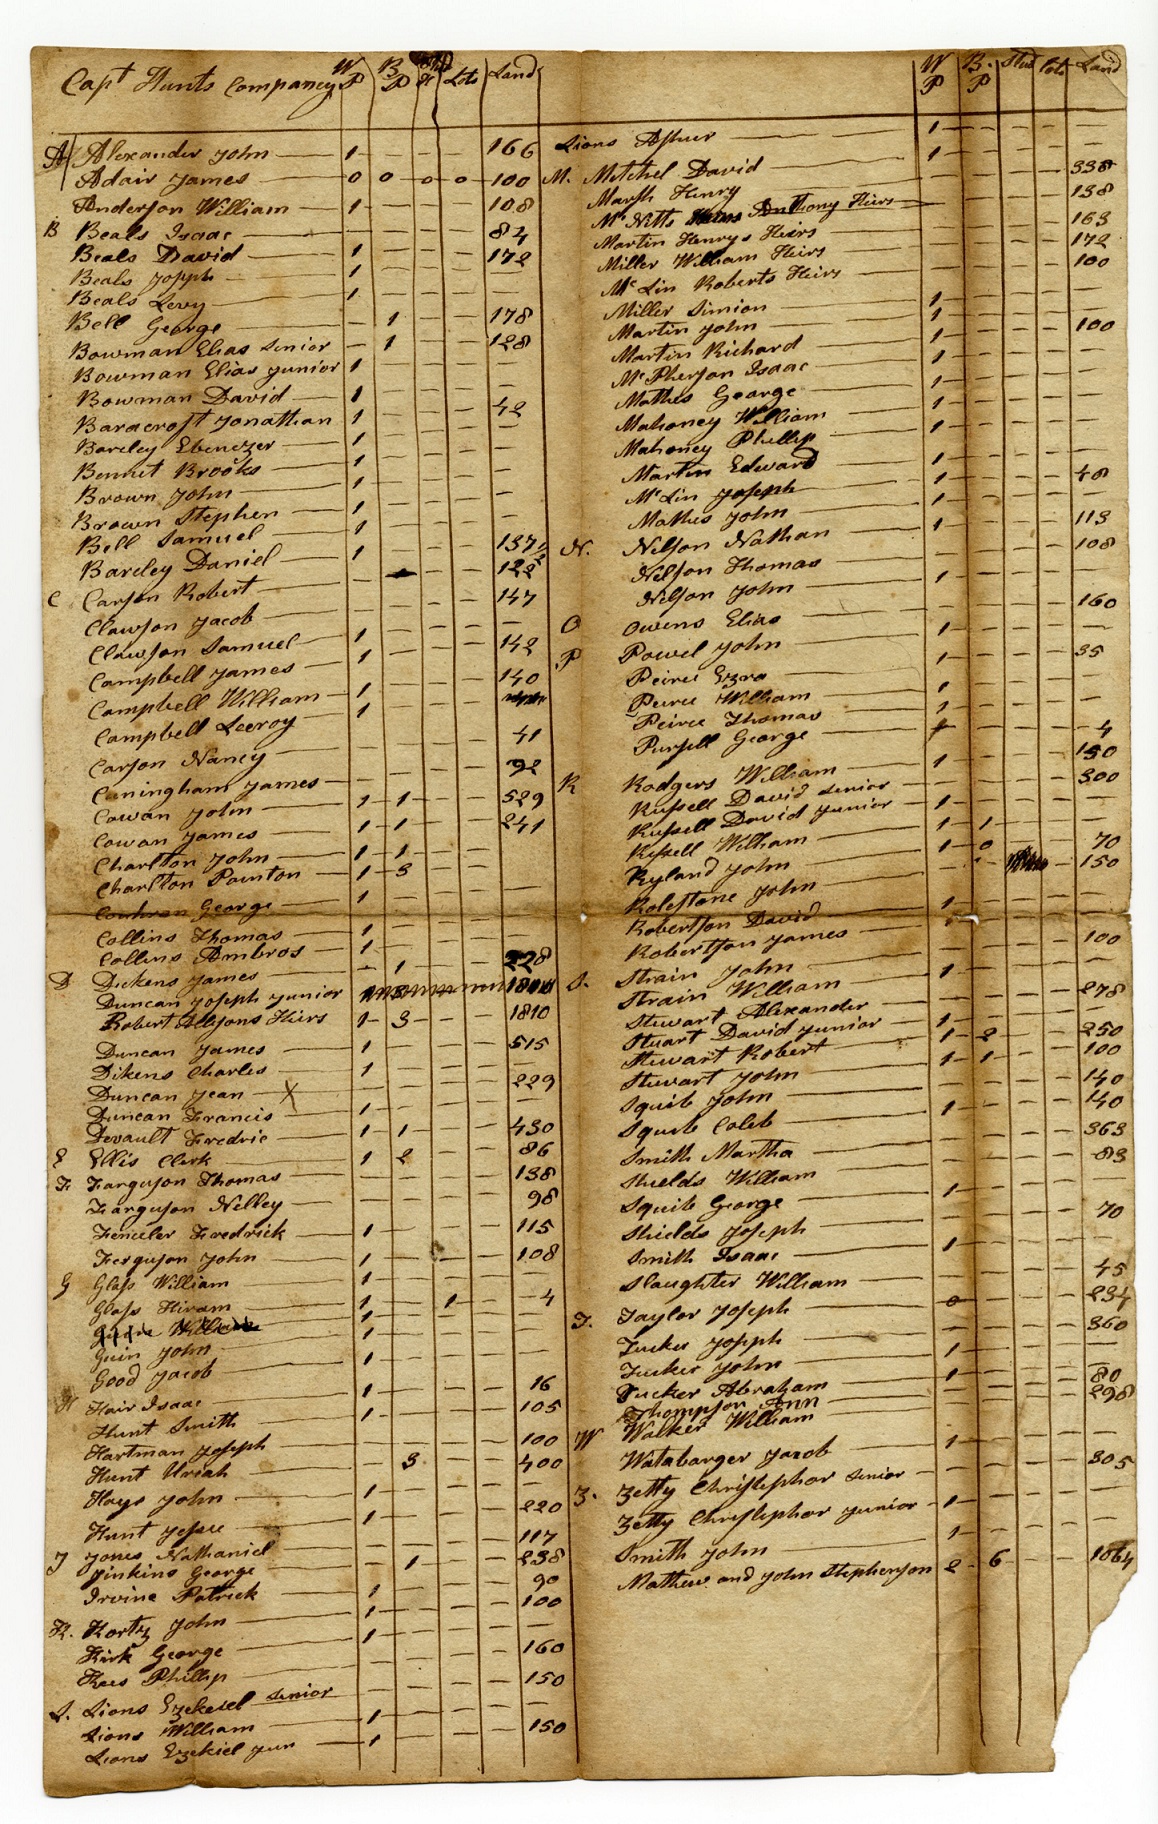 Capt Hunts Company W P B P Lots Land
A Alexander John — 1 — — — 166
Adair James — 0 0 — 0 — 0 — 100
Anderson William — 1 — — — 108
B Beals Isaac — — — — 84
Beals David — 1 — — — 172
Beals Joseph — 1 — — — —
Beals Levy — 1 — — — —
Bell George — — 1 — — 178
Bowman Elias Senior — 1 — — 128
Bowman Elias Junior 1 — — — —
Bowman David — 1 — — — 42
Baracroft Jonathan 1 — — — —
Barcley Ebenezer — 1 — — — —
Bennet Brooks — 1 — — — —
Brown John — 1 — — — —
Brown Stephen — 1 — — — —
Bell Samuel — 1 — — — 137 1/2
Barcley Daniel — 1 — — — 122
C Carson Robert — — — — 147
Clawson Jacob — — — — —
Clawson Samuel — 1 — — — 142
Campbell James — 1 — — — 140
Campbell William — 1 — — —
Campbell Leeroy — 1 — — — 41
Carson Nancy — — — — 92
Cuningham James — — — — 529
Cowan John — 1 — 1 — — 241
Cowan James — 1 — 1 — — —
Charlton John — 1 — 1 — — —
Charlton Pointon — 1 — 3 — — —
Cochran George — 1 — — — —
Collins Thomas — 1 — — — —
Collins Ambros — 1 — — — 228
D Dickens James — — 1 — —
Duncan Joseph Junior
Robert Allisons Hiers 1 — 3 — — 1810
Duncan James — 1 — — — 515
Dikens Charles — 1 — — — —
Duncan Jean — X — — — 229
Duncan Francis — 1 — — — —
Devault Fredric — 1 — 1 — — 430
E Ellis Clerk — 1 2 — — 86
F Farguson Thomas — — — — 138
Farguson Nelley — — — — 98
Fenceler Fredrick — 1 — — — 115
Ferguson John — 1 — — — 108
G Glass William — 1 — — — —
Glass Hiram — 1 — — 1 — 4
Guin John — 1 — — — —
Good Jacob — 1 — — — —
H Hair Isaac — 1 — — — 16
Hunt Smith — 1 — — — 105
Hartman Joseph — — — — 100
Hunt Uriah — — 3 — — 400
Hays John — 1 — — — —
Hunt Jesse — 1 — — — 220
J Jones Nathaniel — — — — 117
Jinkins George — — 1 — — 238
Irvine Patrick — 1 — — — 90
K. Kortz John — 1 — — — 100
Kirk George — 1 — — — —
Kees Phillip — — — — 160
L. Lions Ezekiel Senior — — — — 150
Lions William — 1 — — — —
Lions Ezekiel Jun — 1 — — — 150
W P B. P Stud Lots Land
Lions Asher — 1 — — — —
M. Mitchel David — 1 — — — —
Marsh Henry — — — — 338
Mc Nitts Anthony Hiers — — — — 138
Martin Henrys Heirs — — — — 163
Miller William Heirs — — — — 172
Mc Lin Roberts Heirs — — — — 100
Miller Simion — 1 — — — —
Martin John — 1 — — — —
Martin Richard — 1 — — — 100
McPherson Isaac — 1 — — — —
Mathes George — 1 — — — —
Mahoney William — 1 — — — —
Mahoney Phillip — 1 — — — —
Martin Edward — 1 — — — —
McLin Joseph — 1 — — — 48
Mathes John — 1 — — — —
N. Nelson Nathan — 1 — — — 113
Nelson Thomas — — — — 108
Nelson John — 1 — — — —
O Owens Elias — — — — 160
P Powel John — 1 — — — —
Peirce Ezra — 1 — — — 35
Peirce William — 1 — — — —
Peirce Thomas — 1 — — — —
Pursell George — — — — 4
R Rodgers William — 1 — — — 150
Russell David Senior — — — — 300
Russell David Junior — 1 — — — —
Russell William — 1 — 1 — — —
Ryland John — 1 — 0 — — 70
Rolestone John — — — 150
Robertson David — 1 — — — —
Robertson James — 1 — — — —
S. Strain John — — — — 100
Strain William — 1 — — — —
Stewart Alexander — — — — 278
Stuart David Junior — 1 — — — —
Stewart Robert — 1 — 2 — — 250
Stewart John — 1 — 1 — — 100
Squib John — — — — 140
Squib Caleb — 1 — — — 140
Smith Martha — — — — 363
Shields William — — — — 83
Squib George — 1 — — — —
Shields Joseph — — — — 70
Smith Isaac — 1 — — — —
Slaughter William — — — — 45
T. Taylor Joseph — 0 — — — 234
Tucker Joseph — — — — 360
Tucker John — 1 — — — —
Tucker Abraham — 1 — — — 80
Thompson Ann — — — — 298
W Walker William — — — — —
Watabarger Jacob — 1 — — — —
Z. Zetty Christephor Senior — — — — 305
Zetty Christephor Junior — 1 — — — —
Smith John — 1 — — — —
Mathew and John Stephenson 2 — 6 — — 1064